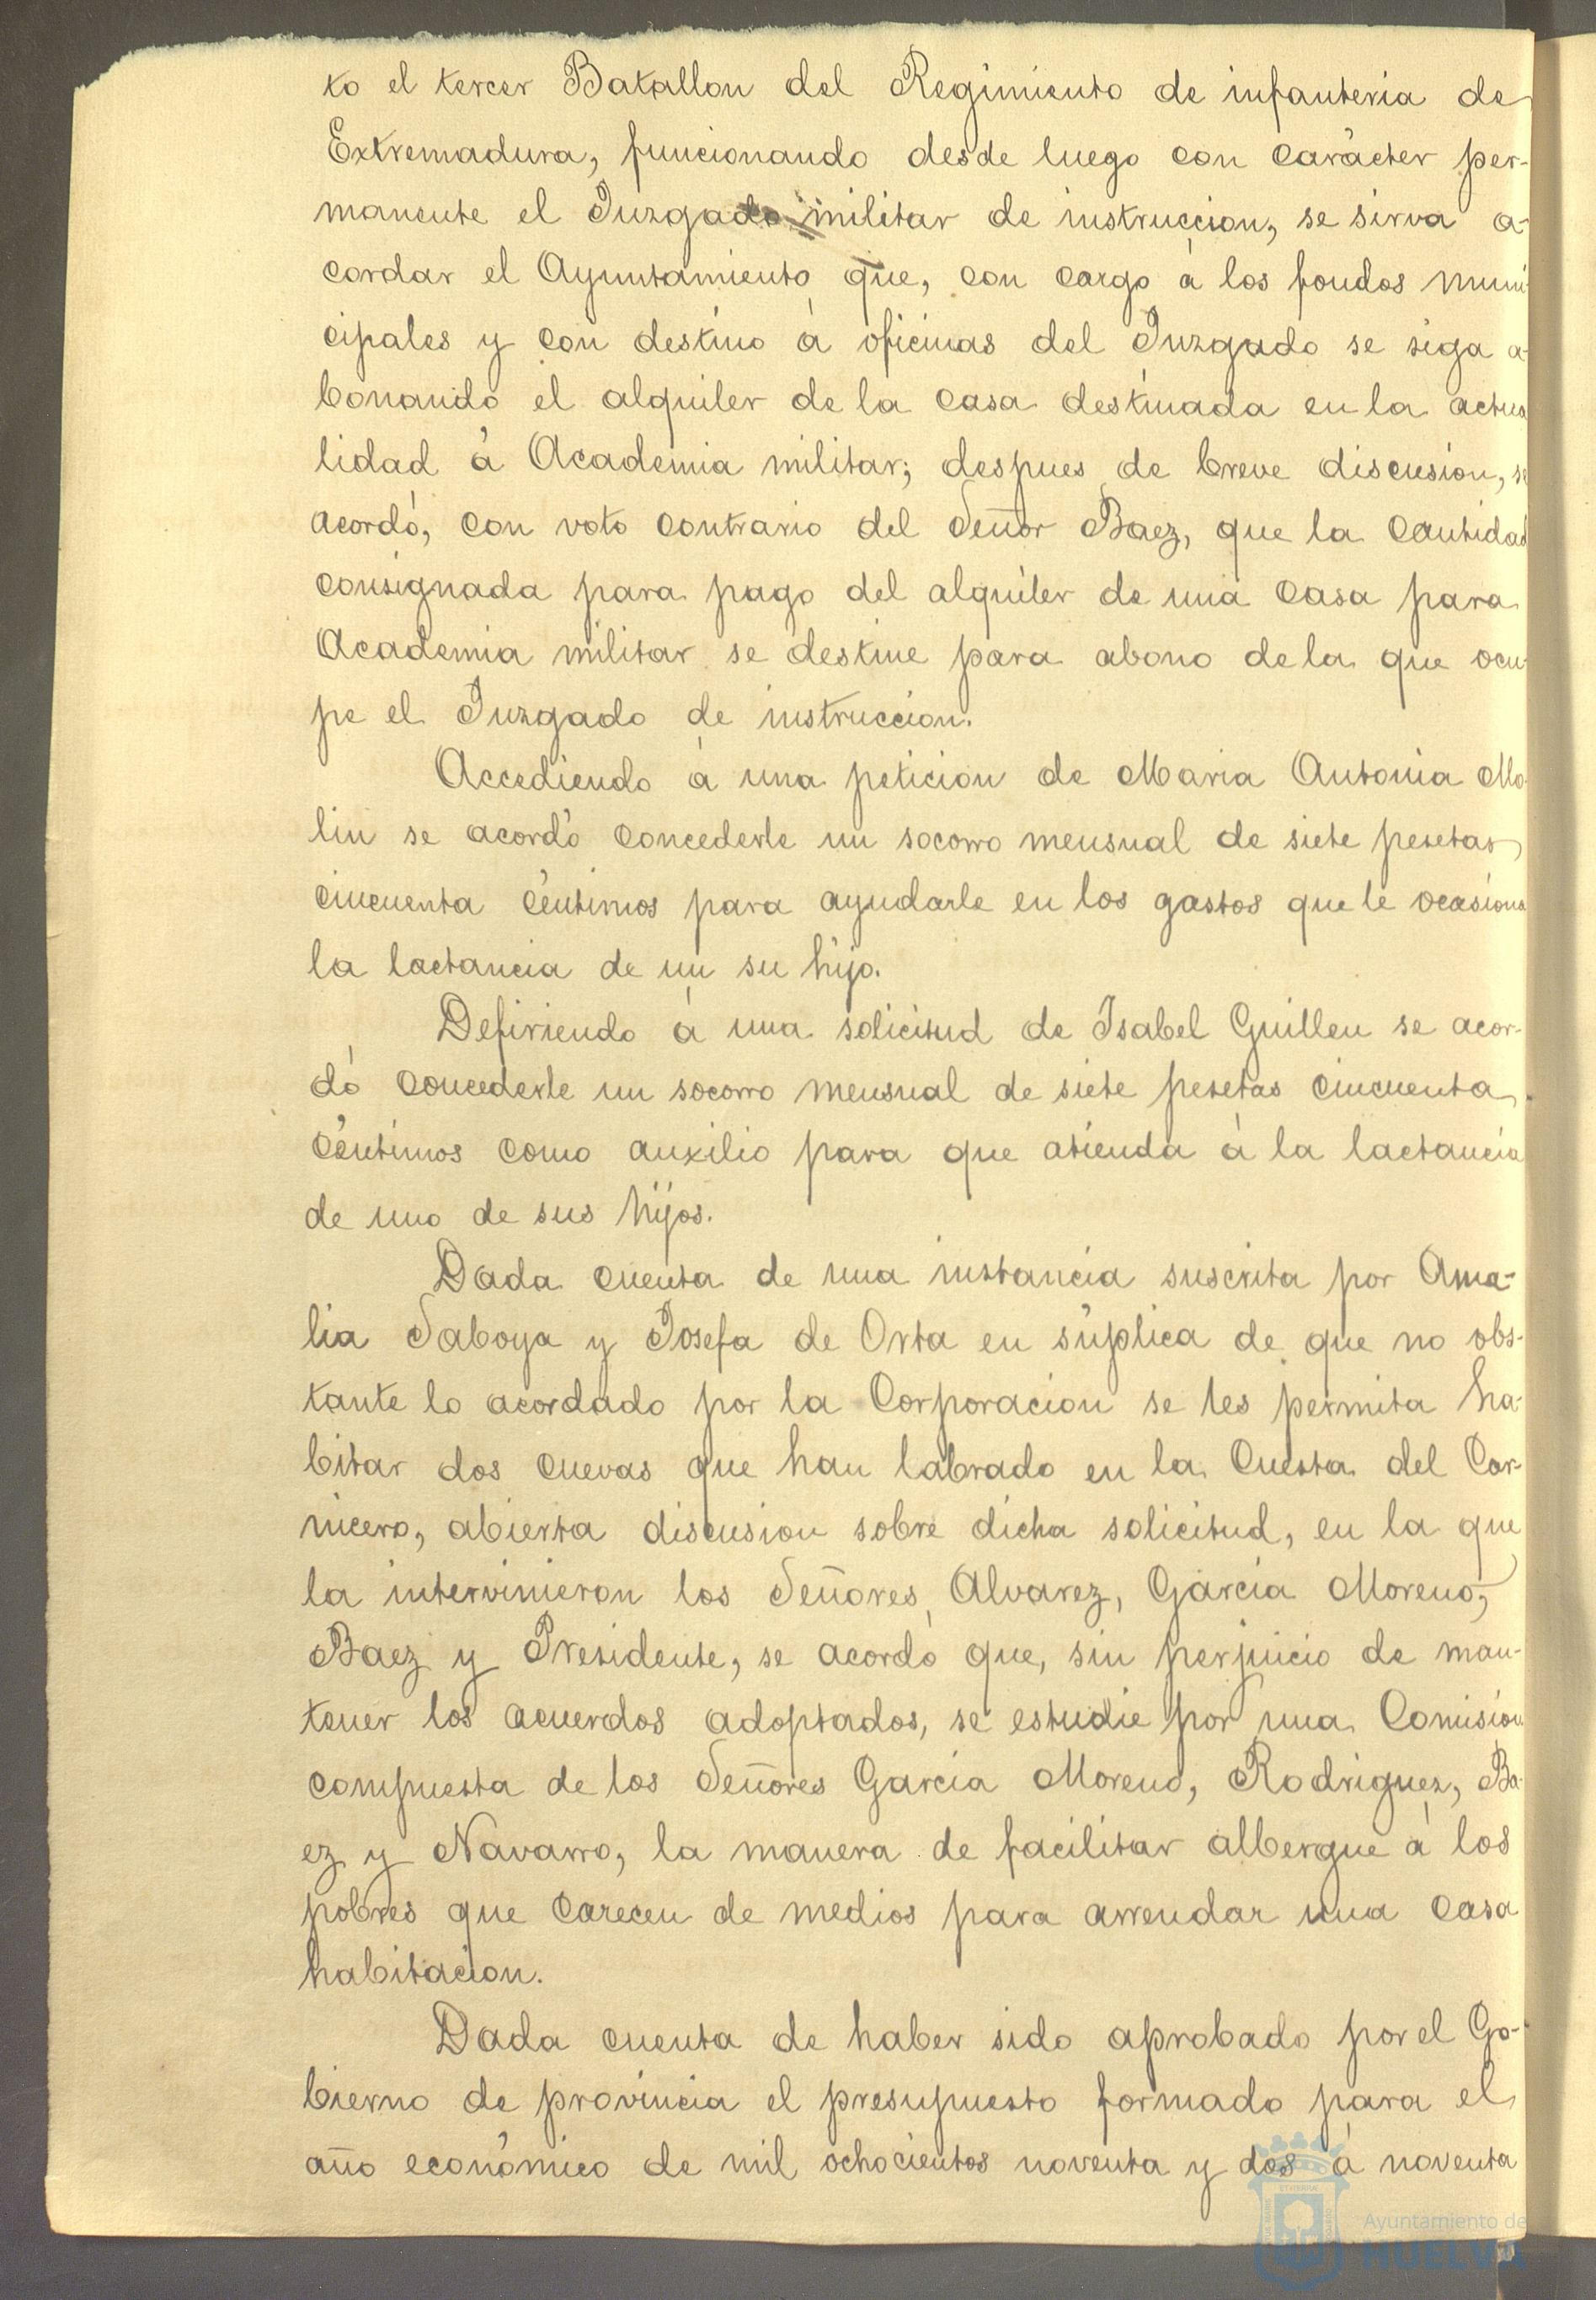 to el tercer Batallon del Regimiento de infanteria de
Extremadura, funcionando desde luego con carácter per-
manente el Juzgado militar de instruccion, se sirva a-
cordar el Ayuntamiento que, con cargo á los fondos muni
cipales y con destino á oficinas del Juzgado se siga a-
bonando el alquiler de la casa destinada en la actua
lidad á Academia militar; despues de breve discusion, se
acordó, con voto contrario del Señor Baez, que la cantidad
consignada para pago del alquiler de una casa para
Academia militar se destine para abono de la que ocu-
pe el Juzgado de instruccion.
Accediendo á una peticion de Maria Antonia Mo
lin se acordó concederle un socorro mensual de siete pesetas
cincuenta céntimos para ayudarle en los gastos que le ocasiona
la lactancia de un su hijo.
Defiriendo á una solicitud de Isabel Guillen se acor-
dó concederle un socorro mensual de siete pesetas cincuenta
céntimos como auxilio para que atienda á la lactancia
de uno de sus hijos.
Dada cuenta de una instancia suscrita por Ama-
lia Saboya y Josefa de Orta en súplica de que no obs-
tante lo acordado por la Corporacion se les permita ha-
bitar dos cuevas que han labrado en la Cuesta del Car-
nicero, abierta discusion sobre dicha solicitud, en la que
la intervinieron los Señores Alvarez, Garcia Moreno,
Baez y Presidente, se acordó que, sin perjuicio de man-
tener los acuerdos adoptados, se estudie por una Comision
compuesta de los Señores Garcia Moreno, Rodriguez, Ba-
ez y Navarro, la manera de facilitar albergue á los
pobres que carecen de medios para arrendar una casa
habitacion.
Dada cuenta de haber sido aprobado por el Go-
bierno de provincia el presupuesto formado para el
año económico de mil ochocientos noventa y dos á noventa
Ayuntamiento de
HUELVA